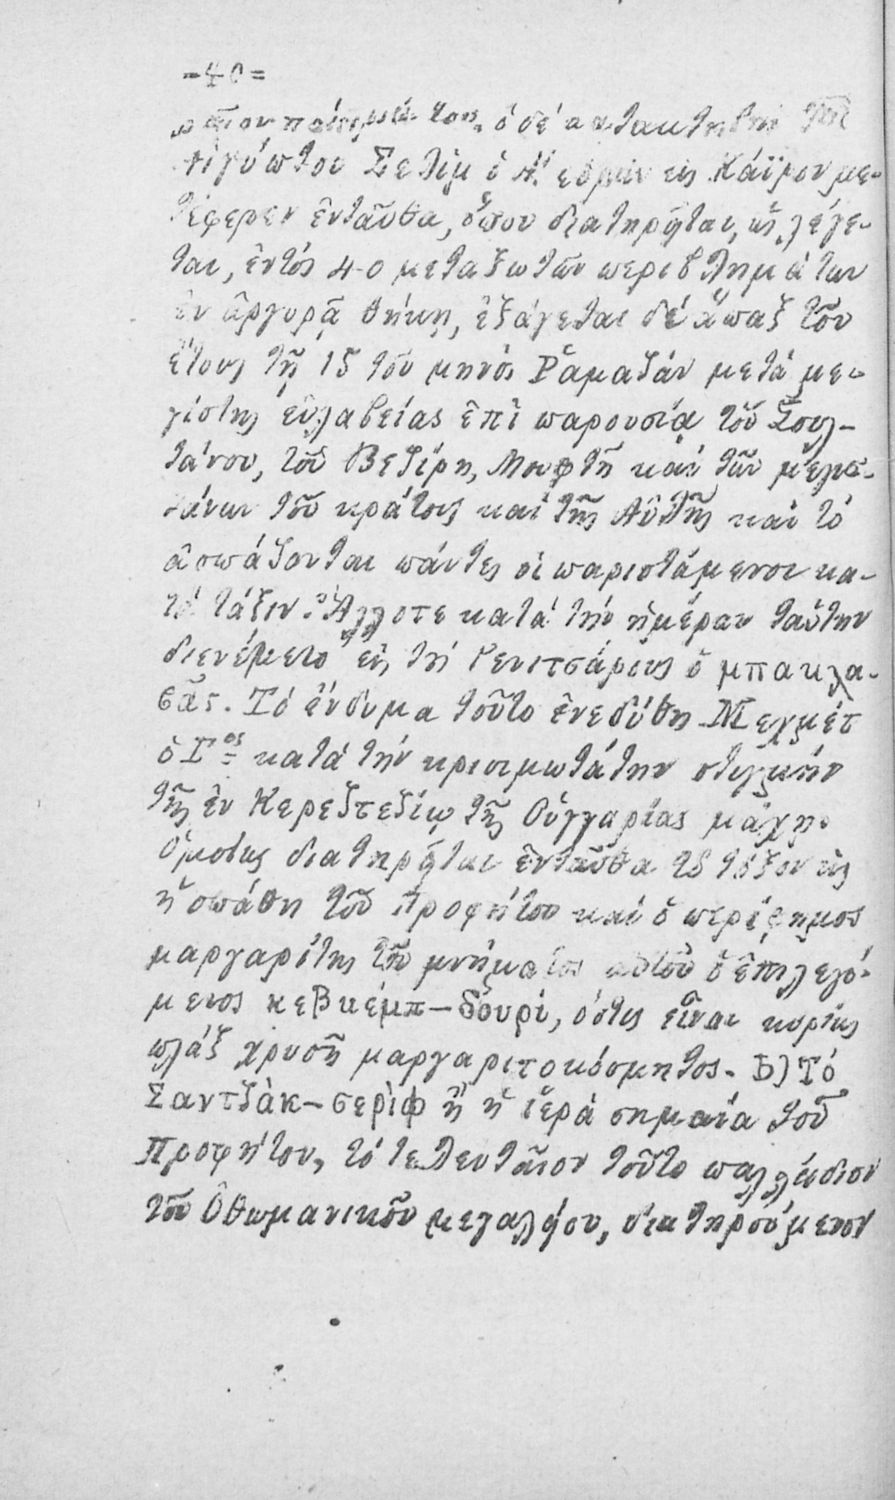 -40=
ὁ δέ κατακτητής τῆς
Αἰγύπτου Σελὶμ ὁ Α! εὑρὼν εἰς Κάϊρον με-
τέφερεν ἐνταῦθα, ὅπου διατηρῆται, ὡς λέγε-
ται, ἐντός 40 μεταξωτῶν περιβλημάτων
ἐν ἀργυρᾷ θήκῃ, ἐξάγεται δέ ἅπαξ τοῦ
ἔτους τῇ 15 τοῦ μηνός Ῥαμαζάν μετά με-
γίστης εὐλαβείας ἐπὶ παρουσίᾳ τοῦ Σουλ-
τάνου, τοῦ Βεζίρη, Μουφτῆ καί τῶν μεγισ-
τάνων τοῦ κράτους καί τῆς Αὐλῆς καί τό
ἀσπάζονται πάντες οἱ παριστάμενοι κα-
τά τάξιν. Ἄλλοτε κατά τήν ἡμέραν ταύτην
διενέμετο εἰς τούς Γενιτσάρους ὁ μπακλα-
βᾶς. Τό ἔνδυμα τοῦτο ἐνεδύθη Μεχμέτ
ὁ Γος κατά τήν κρισιμωτάτην στιγμήν
τῆς ἐν Κερεζτεζίῳ τῆς Οὑγγαρίας μάχης.
Ὁμοίως διατηρῆται ἐνταῦθα τό τόξον ὡς
ἡ σπάθη τοῦ Προφήτου καί ὁ περίφημος
μαργαρίτης τοῦ μνήματος αὐτοῦ ὁ ἐπιλεγό-
μενος κεβκέμπ-δουρί, ὅστις εἶναι κυρίως
πλάξ χρυσῆ μαργαριτοκόσμητος. Б) Τό
Σαντζὰκ-σερὶφ ἢ ἡ ἱερά σημαία τοῦ
Προφήτου, τό τελευταῖον τοῦτο παλλάδιον
τοῦ Ὀθωμανικοῦ μεγαλείου, διατηρούμενον